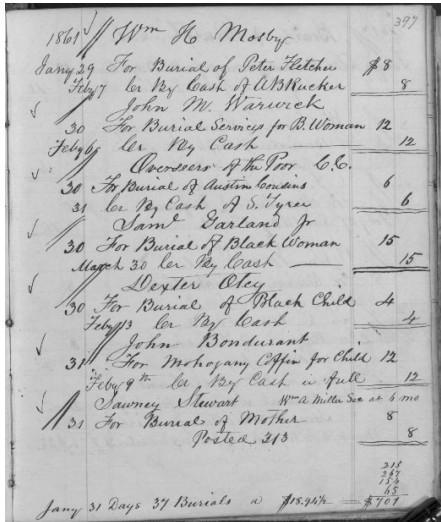 397
1861 // Wm H. Mosby
Jany 29 For Burial of Peter Fletcher $8
Feby 7 Cr By Cash of A B Rucker 8
// John M. Warwick
30 For Burial Services for B. Woman 12
Feby 6 Cr By Cash 12
// Overseers of the Poor C.C.
30 For Burial of Austin Cousins 6
31 Cr By Cash of S. Tyree 6
// Saml Garland Jr
30 For Burial of Black Woman 15
March 30 Cr By Cash 15
// Dexter Otey
30 For Burial of Black Child 4
Feby 13 Cr By Cash 4
// John Bondurant
31 For Mohogany Coffin for Child 12
Feby 9th Cr By Cash in full 12
// Sawney Stewart Wm A Miller Sec at 6 mo
31 For Burial of Mother 8
Posted 213 8
215
267
154
65
Jany 31 Days 37 Burials a $18.94½ = $701